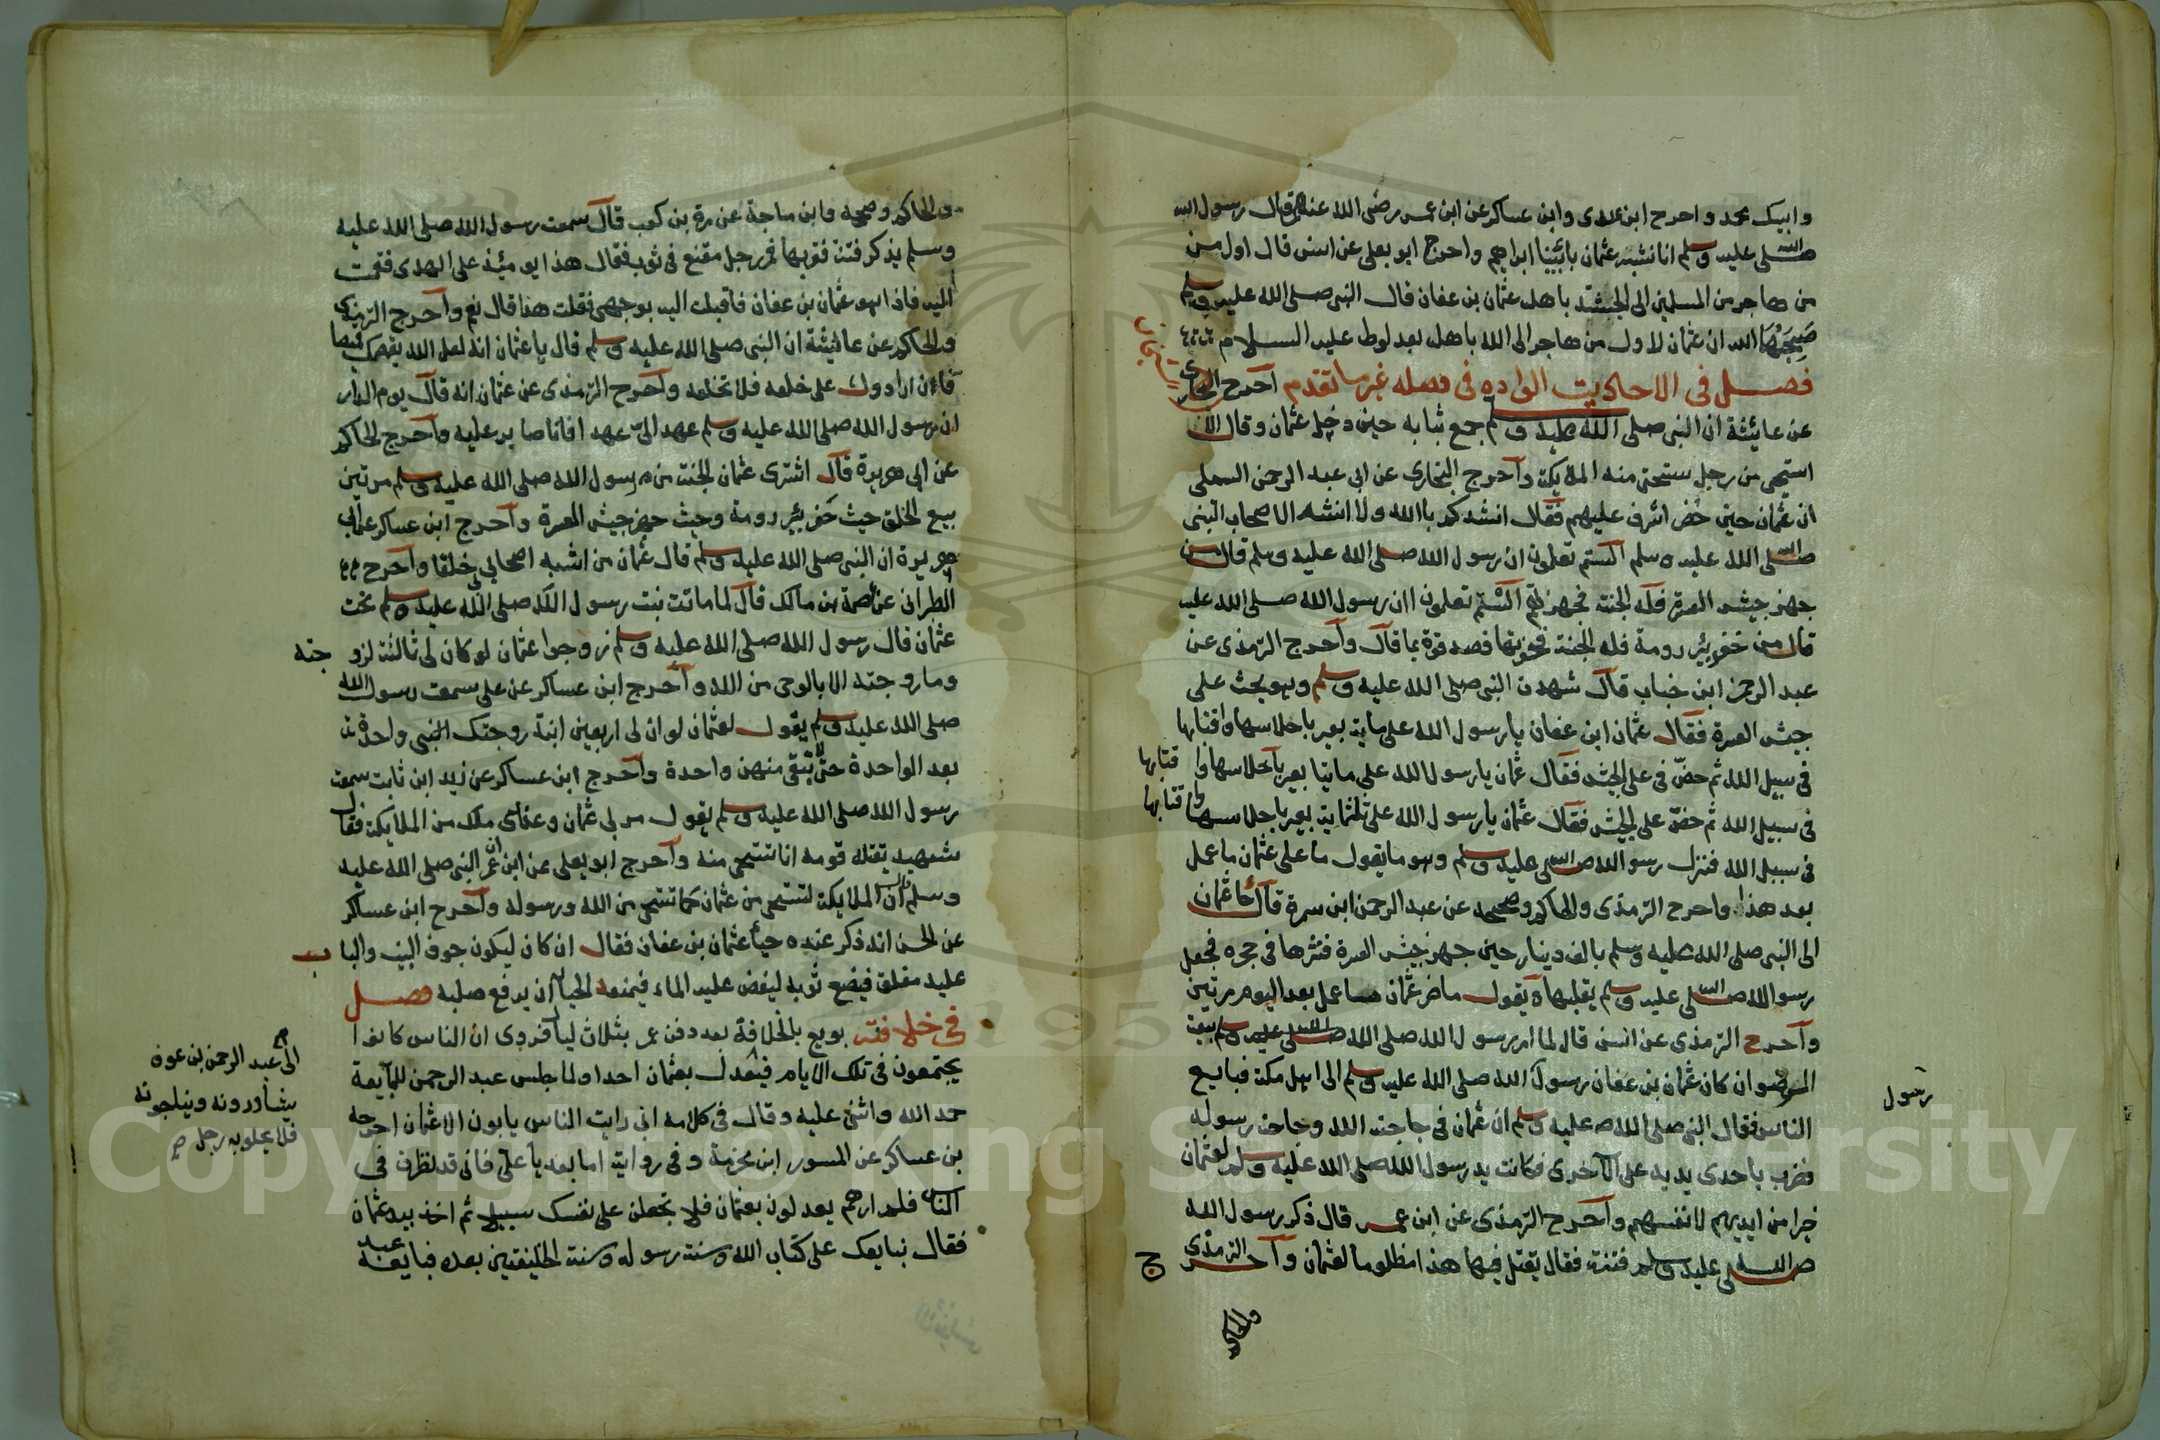 وابيك محمد واخرج ابن عدى وابن عساكر عن ابن عمر رضى الله عنهم قال رسول الله
صلى الله عليه وسلم انا نشبه عثمان بابينا ابراهيم واخرج ابو يعلى عن انس قال اول من
من هاجر من المسلمين الى الحبشة باهله عثمان بن عفان فقال النبي صلى الله عليه وسلم
صحبهما الله ان عثمان لاول من هاجر الى الله باهله بعد لوط عليه السلام
فصل فى الاحاديث الوارده فى فضله غير ما تقدم اخرج البخارى
عن عائشة ان النبي صلى الله عليه وسلم جمع ثيابه حين دخل عثمان وقال الا
استحى من رجل تستحى منه الملايكة واخرج البخارى عن ابى عبد الرحمن السملى
ان عثمان حين حضر اشرف عليهم فقال انشدكم بالله ولا انشد الا صحاب النبي
صلى الله عليه وسلم الستم تعلمون ان رسول الله صلى الله عليه وسلم قال من
جهز جيش العسرة فله الجنة فجهزتهم الستم تعلمون ان رسول الله صلى الله عليه
قال من حفر بئر رومة فله الجنة فحفرتها فصدقوة بما قال واخرج الترمذى عن
عبد الرحمن ابن خباب قال شهدت النبي صلى الله عليه وسلم وهو يحث على
جيش العسرة فقال عثمان ابن عفان يا رسول الله على ماية بعير باحلاسها واقتابها
فى سبيل الله ثم حض فى على الجيش فقال عثمان يا رسول الله على ماتيا بعير باحلاسها وا قتابها
فى سبيل الله ثم حض على الجيش فقال عثمان يا رسول الله على ثلثماية بعير باحلاسها وا قتابها
فى سبيل الله فنزل رسوالله صلى الله عليه وسلم وهو ما يقول ما على عثمان ما عمل
بعد هذا واخرج الترمذى والحاكم وصححه عن عبد الرحمن ابن سمرة قال جا عثمان
الى النبي صلى الله عليه وسلم بالف دينار حين جهز جيش العسرة فنثرها فى حجره فجعل
رسوالله صلى الله عليه وسلم يقلبها ويقول ما ضر عثمان ما عمل بعد اليوم مرتين
واخرج الترمذى عن انس قال لما امر رسول الله صلى الله عليه وسلم بيعة
الرضوان كان عثمان بن عفان رسول الله صلى الله عليه وسلم الى اهل مكة فبايع
رسول
الناس فقال النبي صلى الله عليه وسلم ان عثمان فى حاجة الله وحاجة رسوله
فضرب باحدى يديه على الاخرى فكانت يد رسول الله صلى الله عليه وسلم لعثمان
خيرا من ايديهم لانفسهم واخرج الترمذى عن ابن عمر قال ذكر رسول الله
صلى الله عليه وسلم فتنة فقال يقتل فيها هذا مظلوما لعثمان واخرج الترمذى
والحاكم
والحاكم وصححه وابن ماجة عن مرة بن كعب قال سمعت رسول الله صلى الله عليه
وسلم يذكر فتنة فقربها فمر رجل مقنع فى ثوب فقال هذا يومئذ على الهدى فقمت
اليه فاذا هو عثمان بن عفان فاقبلت اليه بوجهى فقلت هذا قال نعم واخرج الترمذى
والحاكم عن عائشة ان النبي صلى الله عليه وسلم قال يا عثمان انه لعل الله يقمصك قميصا
فاءن ارادوك على خلعه فلا تخلعه واخرج الترمذى عن عثمان انه قال يوم الدار
ان رسول الله صلى الله عليه وسلم عهد الى عهد افانا صابر عليه واخرج الحاكم
عن ابى هريرة قال اشترى عثمان الجنة من رسول الله صلى الله عليه وسلم مرتين
بيع الخلق حيث حفر بئر رومة وحيث جهز جيش العسرة واخرج ابن عساكر عن ابى
هريرة ان النبي صلى الله عليه وسلم قال عثمان من اشبه اصحابى بى خلقا واخرج
الطبرانى عن عصمة بن مالك قال لما ماتت بنت رسول الله صلى الله عليه وسلم تحت
عثمان قال رسول الله صلى الله عليه وسلم زوجوا عثمان لو كان لى ثالثة لزو جته
وما زوجته الا بالوحى من الله واخرج ابن عساكر عن على سمعت رسول الله
صلى الله عليه وسلم يقول لعثمان لو ان لى اربعين ابنة زوجتك الجني واحدة
بعد الواحدة حتى لا تبقى منهن واحدة واخرج ابن عساكر عن زيد ابن ثابت سمعت
رسول الله صلى الله عليه وسلم يقول مر بى عثمان وعندى ملك من الملايكة فقال
شهيد يقتله قومه انا نستحى منه واخرج ابو يعلى عن ابن عمر النبي صلى الله عليه
وسلم قال ان الملايكة لتستحى من عثمان كما تستحى من الله ورسوله واخرج ابن عساكر
عن الحسن انه ذكر عنده حيا عثمان بن عفان فقال ان كان ليكون جوف البيت والبا ب
عليه مغلق فيضع ثوبه ليفض عليه الماء فيمنعه الحيا ان يرفع صلبه فصل
فى خلافته بويع بالخلافة بعد دفن عمر بثلاث ليال فروى ان الناس كانوا
يجتمعون فى تلك الايام
الى عبد الرحمن بن عوف
يشاورونه ويناجونه
فلا يخلو به رجل
فيعدل بعثمان احدا ولما جلس عبد الرحمن للمبايعة
حمد الله واثنى عليه وقال فى كلامه انى رايت الناس يابون الا عثمان اخرجه
بن عساكر عن المسور ابن مخرمة وفى رواية اما بعد يا على فانى قد نظرت فى
الناس فلم ارهم يعدلون بعثمان فلا تجعلن على نفسك سبيلا ثم اخذ بيد عثمان
فقال نبايعك على كتاب الله وسنة رسوله وسنة الخليفتين بعده فبايعه عبد